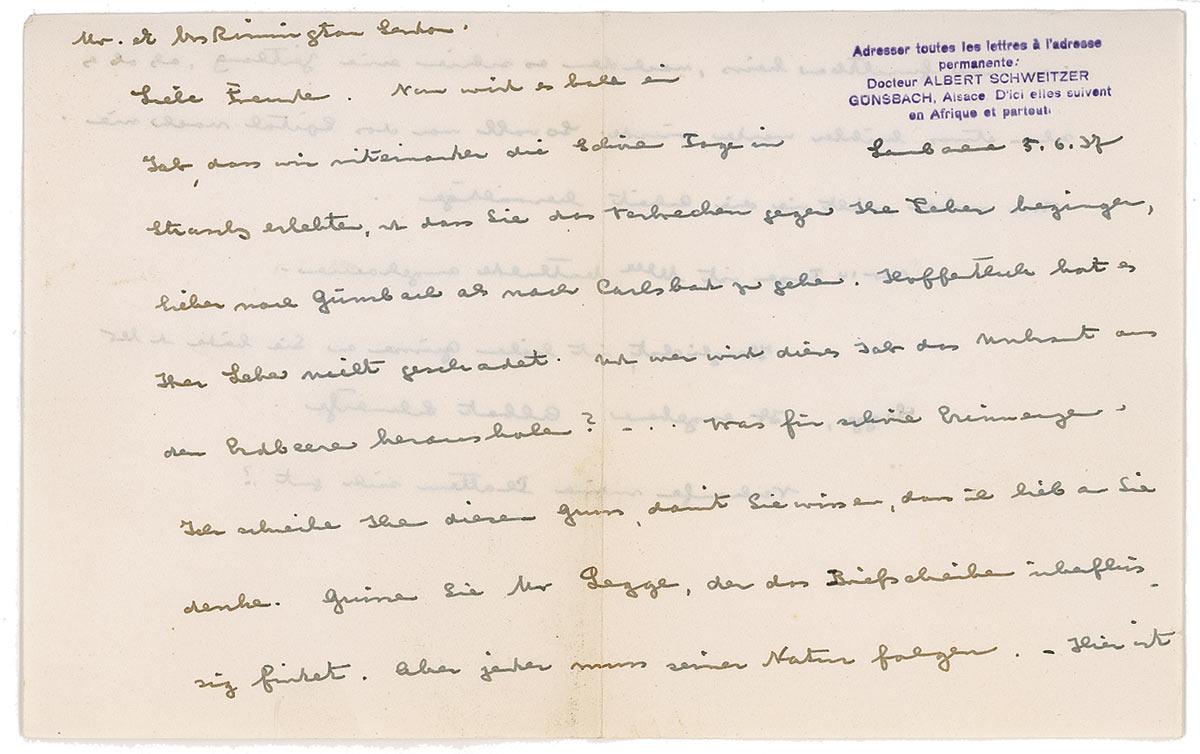 Mr. et Mrs Rimington London.
Adresser toutes les lettres à l'adresse
permanente:
Docteur ALBERT SCHWEITZER
GUNSBACH, Alsace. D'ici elles suivent
en Afrique et partout.
Liebe Freunde. Nun wird es bald ein
Lambarene 5.6.37
Jahr, dass wir miteinander die schöne Tage in
Strassbg erlebten, u dass Sie das Verbrechen gegen Ihre Leber begingen,
lieber nach Günsbach als nach Carlsbad zu gehen. Hoffentlich hat es
Ihrer Leber nicht geschadet. Und wer wird dieses Jahr das Unkraut aus
den Erdbeeren heraushole? -... Was für schöne Erinnerungen.
Ich schreibe Ihnen diesen Gruss, damit Sie wissen, dass ich lieb an Sie
denke. Grüssen Sie Mr Legge, der das Briefschreiben überflüs-
sig findet. Aber jeder muss seiner Natur folgen. - Hier ist